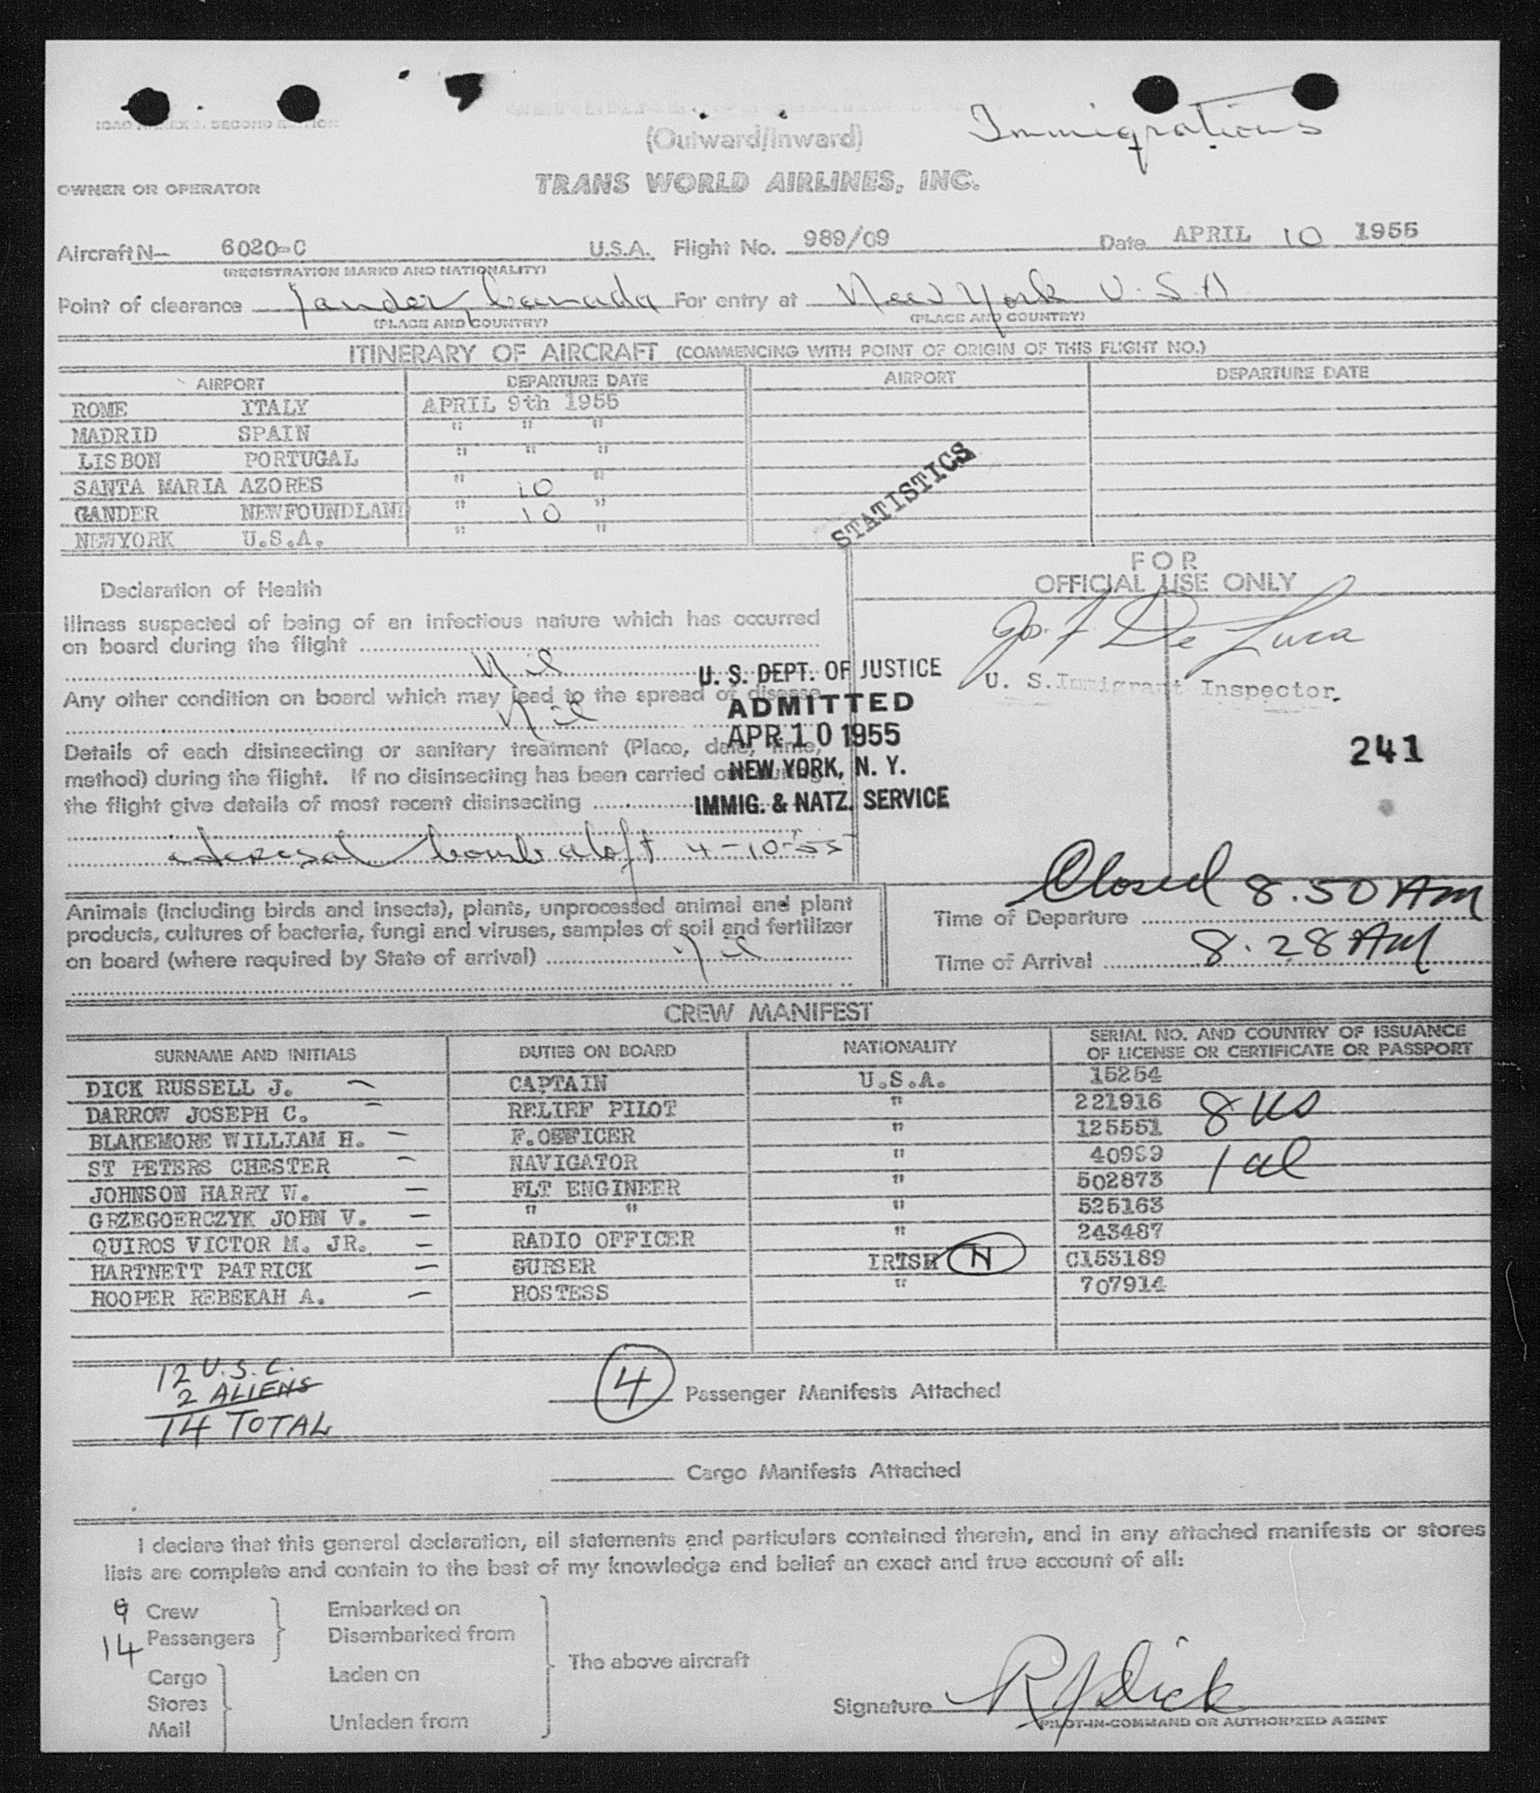 ICAO ANNEX 9. SECOND EDITION
(Outward/Inward)
Immigrations
OWNER OR OPERATOR
TRANS WORLD AIRLINES, INC.
Aircraft N- 6020-C U.S.A. Flight No. 989/09 Date APRIL 10 1955
(REGISTRATION MARKS AND NATIONALITY)
Point of clearance Gander, Canada For entry at New York U.S.A
(PLACE AND COUNTRY) (PLACE AND COUNTRY)
ITINERARY OF AIRCRAFT (COMMENCING WITH POINT OF ORIGIN OF THIS FLIGHT NO.)
AIRPORT DEPARTURE DATE AIRPORT DEPARTURE DATE
ROME ITALY APRIL 9th 1955
MADRID SPAIN " " "
LISBON PORTUGAL " " "
SANTA MARIA AZORES " 10 "
GANDER NEWFOUNDLAND " 10 "
NEWYORK U.S.A. " "
STATISTICS
FOR
OFFICIAL USE ONLY
Jos. F. De Luca
U. S. Immigrant Inspector.
241
Declaration of Health
Illness suspected of being of an infectious nature which has occurred
on board during the flight
Nil
Any other condition on board which may lead to the spread of disease
Nil
Details of each disinsecting or sanitary treatment (Place, date, time,
method) during the flight. If no disinsecting has been carried out during
the flight give details of most recent disinsecting
aerosal bomb aloft 4-10-55
U. S. DEPT. OF JUSTICE
ADMITTED
APR 10 1955
NEW YORK, N. Y.
IMMIG. & NATZ. SERVICE
Animals (including birds and insects), plants, unprocessed animal and plant
products, cultures of bacteria, fungi and viruses, samples of soil and fertilizer
on board (where required by State of arrival) Nil
Closed 8.50 AM
Time of Departure
Time of Arrival 8.28 AM
CREW MANIFEST
SURNAME AND INITIALS DUTIES ON BOARD NATIONALITY SERIAL NO. AND COUNTRY OF ISSUANCE
OF LICENSE OR CERTIFICATE OR PASSPORT
DICK RUSSELL J. CAPTAIN U.S.A. 15254
DARROW JOSEPH C. RELIEF PILOT " 221916
BLAKEMORE WILLIAM H. F.OFFICER " 125551
ST PETERS CHESTER NAVIGATOR " 40989
JOHNSON HARRY W. FLT ENGINEER " 502873
GRZEGOERCZYK JOHN V. " " " 525163
QUIROS VICTOR M. JR. RADIO OFFICER " 243487
HARTNETT PATRICK PURSER IRISH N C153189
HOOPER REBEKAH A. HOSTESS " 707914
8 US
1 al
12 U.S.C.
2 ALIENS
14 TOTAL
4 Passenger Manifests Attached
Cargo Manifests Attached
I declare that this general declaration, all statements and particulars contained therein, and in any attached manifests or stores
lists are complete and contain to the best of my knowledge and belief an exact and true account of all:
9 Crew
14 Passengers
Cargo
Stores
Mail
Embarked on
Disembarked from
Laden on
Unladen from
The above aircraft
Signature R J Dick
PILOT-IN-COMMAND OR AUTHORIZED AGENT